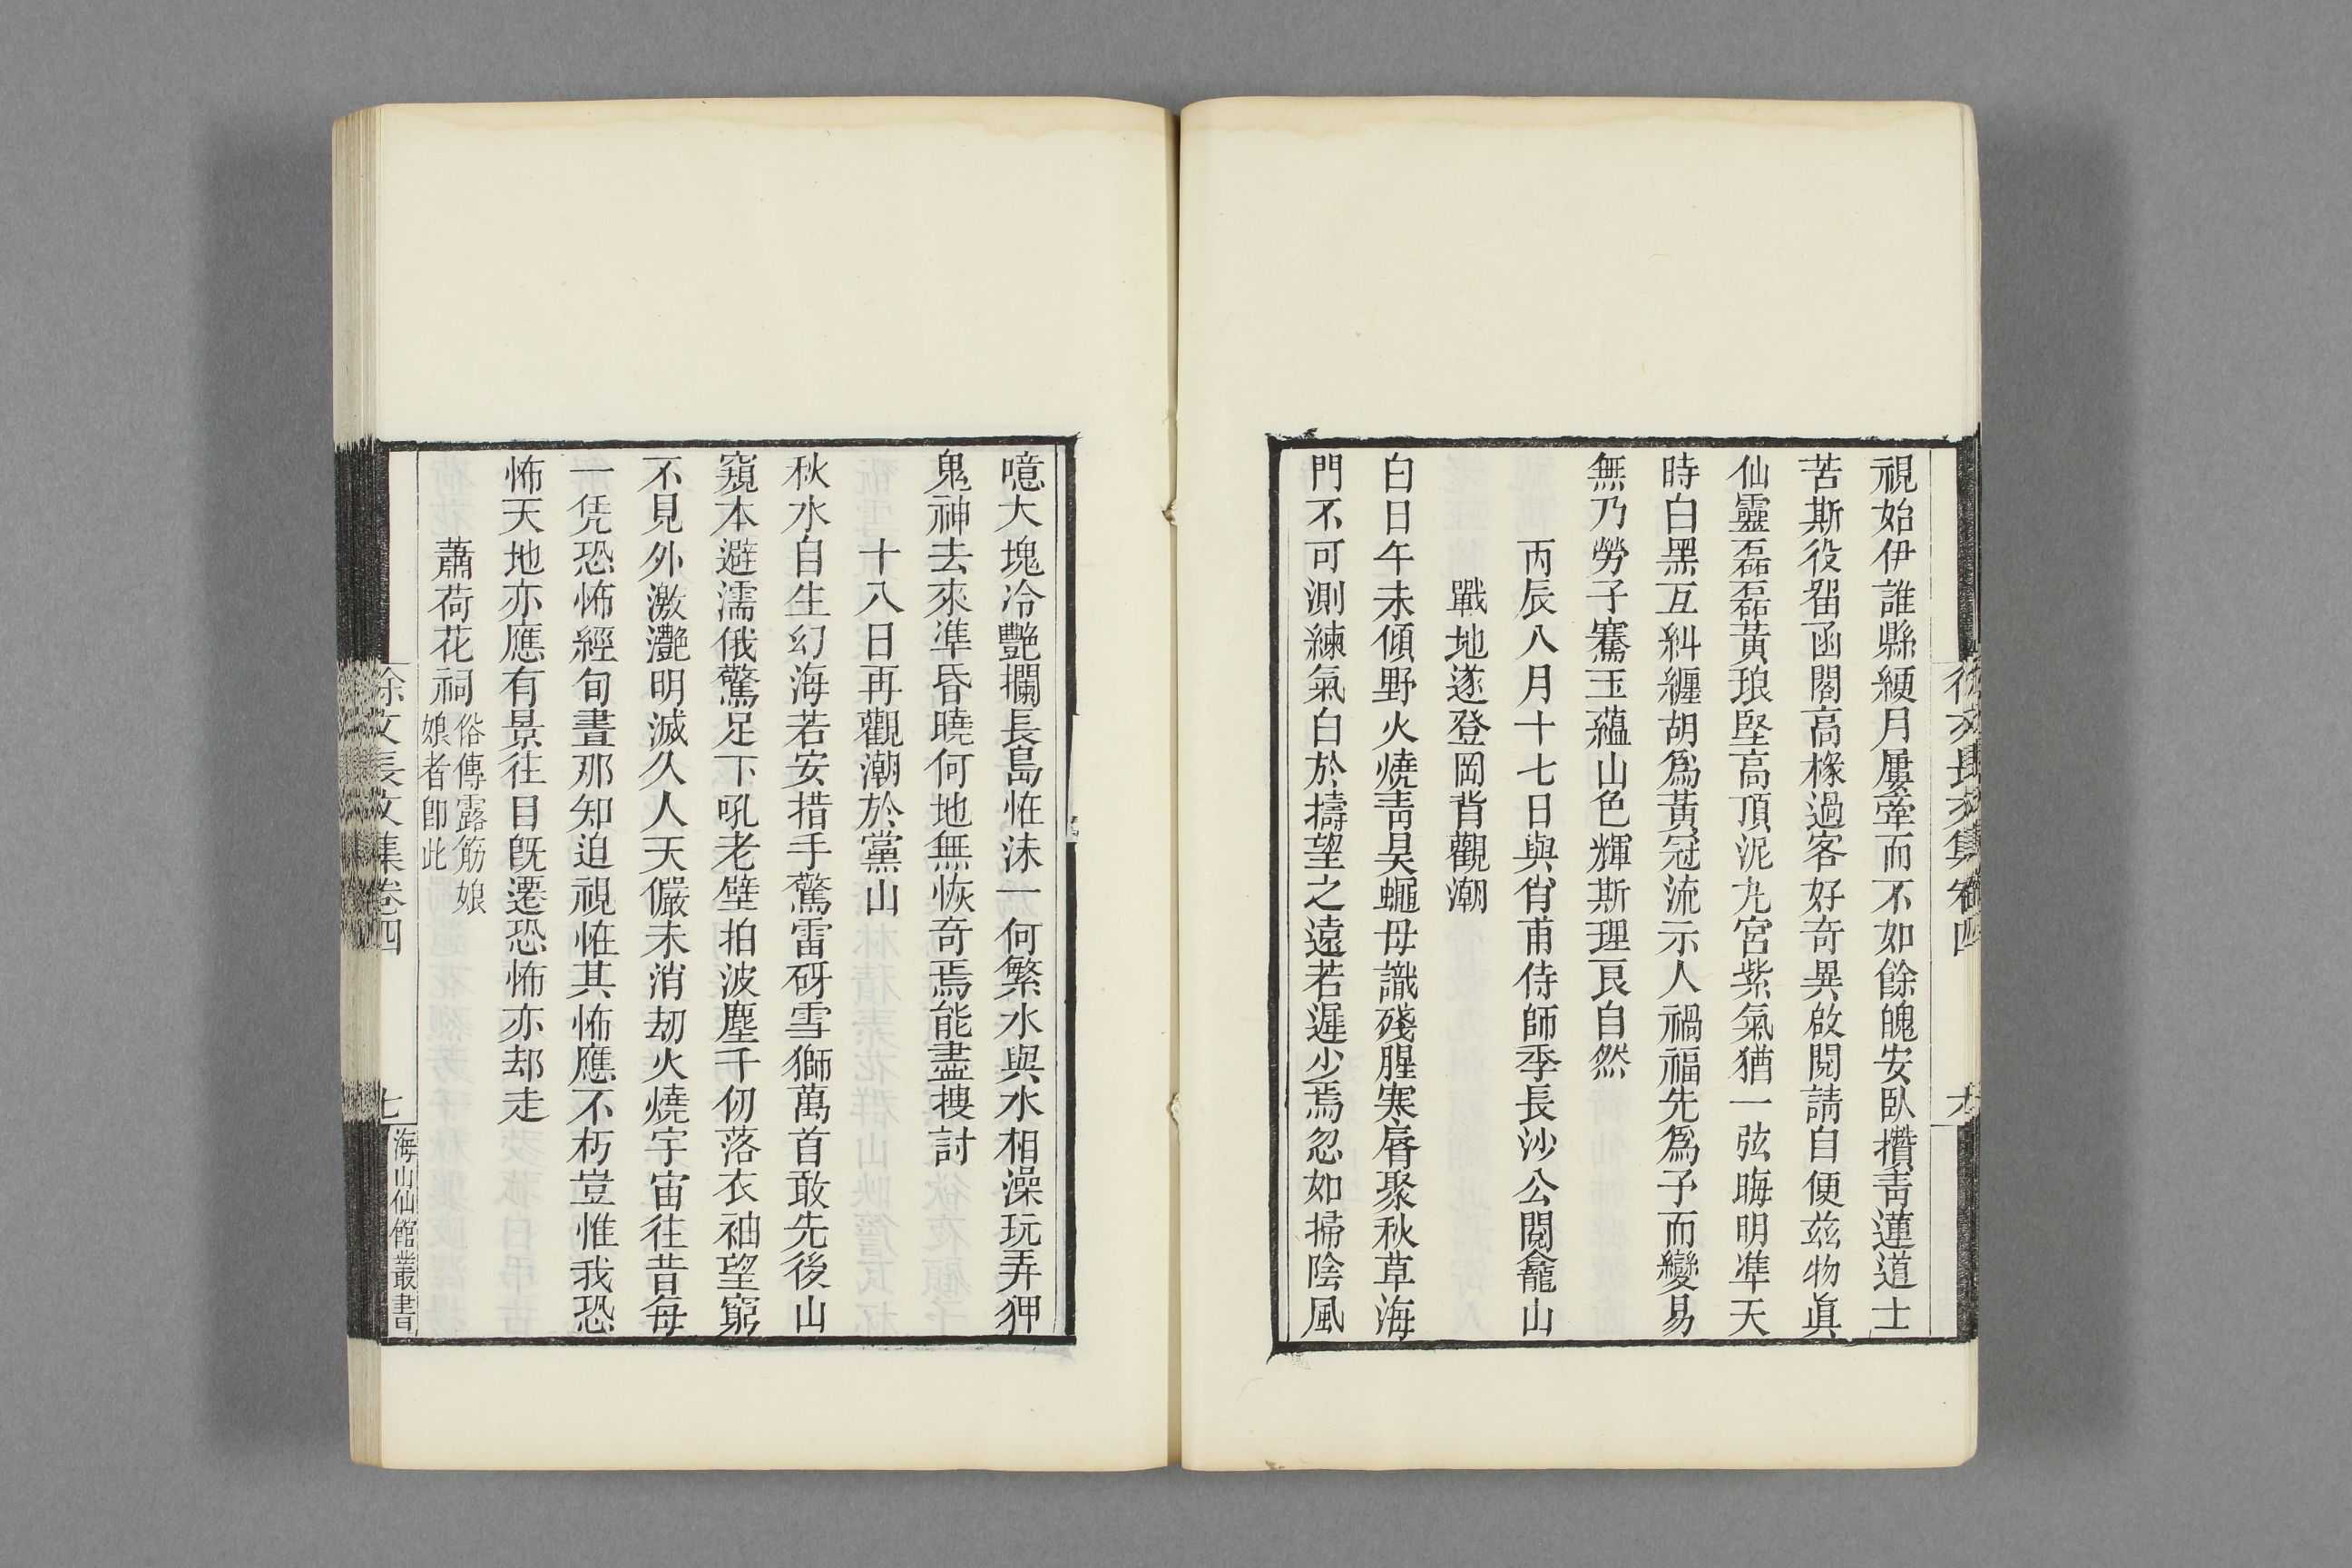 視始伊誰縣綆月屢牽而不如餘魄安臥攢靑蓮道士
苦斯役畱函閣高椽過客好奇異啟閱請自便玆物眞
仙靈磊磊黃琅堅高頂泥九宮紫氣猶一弦晦明準天
時白黑互糾纏胡爲黃冠流示人禍福先爲子而變易
無乃勞子騫玉蘊山色輝斯理良自然
丙辰八月十七日與肖甫侍師季長沙公閱龕山
戰地遂登岡背觀潮
白日午未傾野火燒靑昊蠅母識殘腥寒脣聚秋草海
門不可測練氣白於擣望之遠若遲少焉忽如掃陰風
噫大塊冷豔攔長島恠沫一何繁水與水相澡玩弄狎
鬼神去來準昏曉何地無恢奇焉能盡摟討
十八日再觀潮於黨山
秋水自生幻海若安措手驚雷砑雪獅萬首敢先後山
窺本避濡俄驚足下吼老壁拍波塵千仞落衣袖望窮
不見外激灩明滅久人天儼未消刼火燒宇宙往昔每
一凭恐怖經旬晝那知迫視恠其怖應不朽豈惟我恐
怖天地亦應有景往目旣遷恐怖亦却走
蕭荷花祠俗傳露筋娘娘者卽此
徐文長文集卷四
七
海山仙館叢書